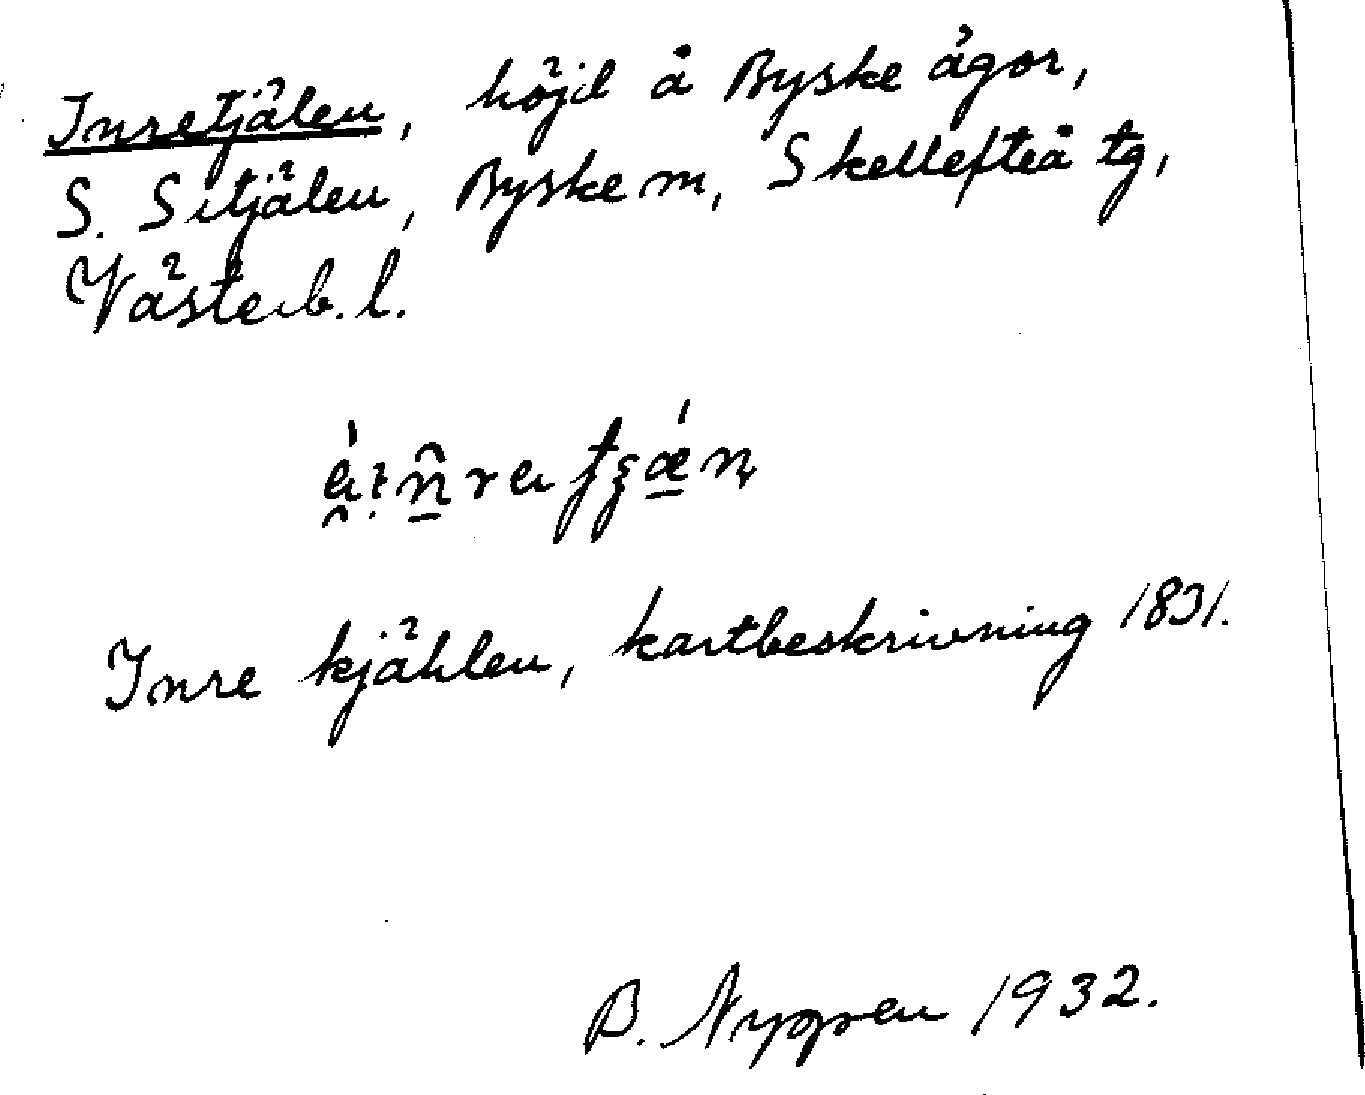 Inretjälen, höjd å Byske ägor,
S. Sitjälen, Byske sn, Skellefteå tg,
Västerb. l.
Inre kjählen, kartbeskrivning 1831.
B. Nygren 1932.